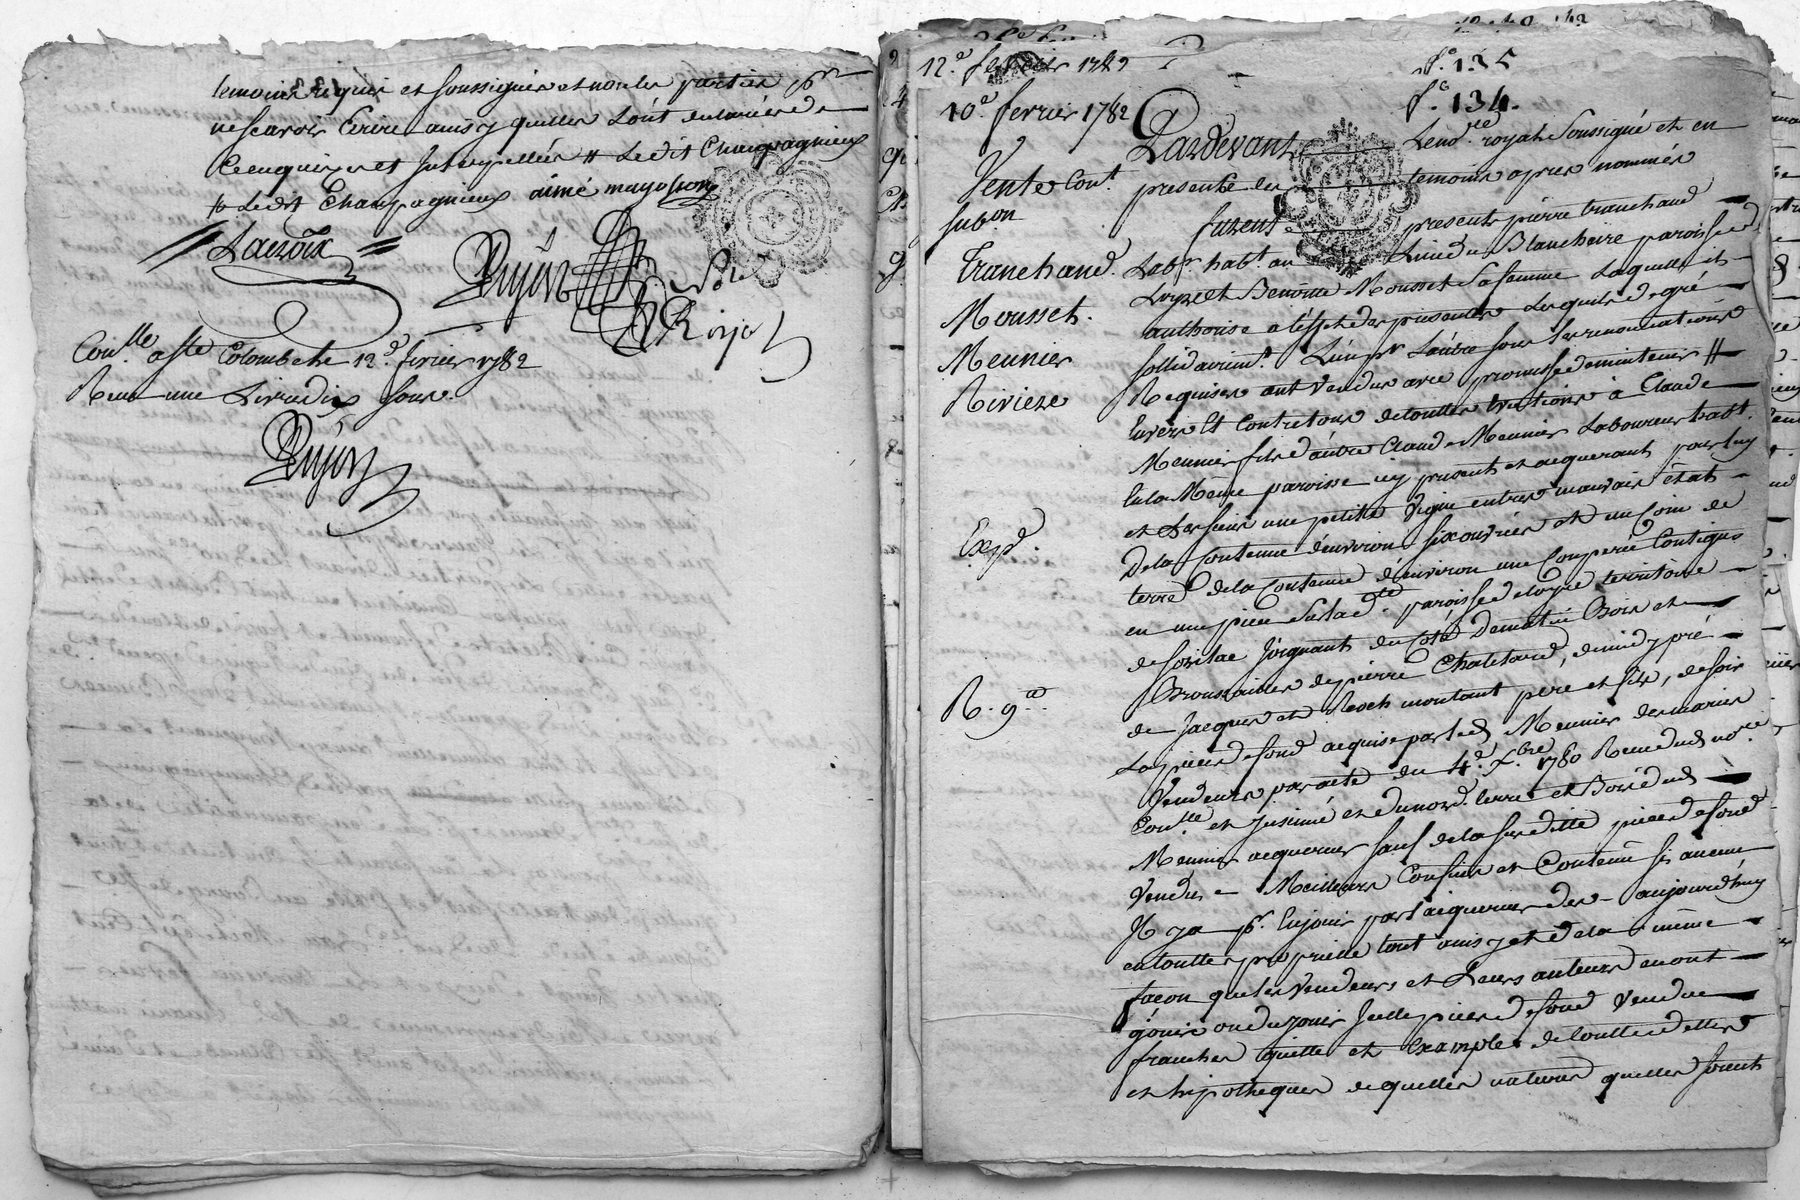 temoins requis et soussignés et non les parties pr
ne scavoir Ecrire ainsy quelles L'ont declaré de
ce enquises et Interpellées # Ledit Champagnieux
# Ledit Champagnieux aimé mayosson
Lacroix
Dujon
Con.lle aste Colombe le 12.e fevrier 1782
Reçu une Livre dix sous.
Dujon
12.e fevrier 1782
f.o 135
10.e fevrier 1782
f.o 134.
Pardevant Le no.re royal Soussigné et en
Vente Cont.
presence des temoins apres nommés
sub.on
furent presents pierre tranchand
Tranchand.
Lab.r hab.t au Lieu du Blancheire paroisse d
Mousset.
Loyre et Benoitte Mousset Sa femme Laquelle il
authorise a l'effet des presentes Lesquels de gré
Meunier
sollidairem.t L'un pr L'autre sous Les renonciations
Riviere
Requises ont vendus avec promesse de maintenir #
Envers Et Contre tous de touttes evictions à Claude
Meunier fils d'autre Claude Meunier Laboureur hab.t
En la Même paroisse icy present et acquerant pour luy
et Les siens une petitte Vigne en tres mauvais état
Exp.é
De la Contenue d'environ six ouvrées et un Coin de
terre de la Contenue d'environ une Couperée Contigus
en une piece Sur la d.te paroisse de loyre territoire
de Joignant du Coté De matin Bois et
Broussailles de pierre Chaletard, de midy pré
R. 9.a
de Jacques et Roch montant pere et fils, de soir
La piece de fond acquise par led. Meunier des mariés
Vendeurs par acte du 4.e x.bre 1780 Reçu dud. no.re
Con.lle et Insinué et du nord terre et Bois dud.
Meunier acquereur sauf de la susditte piece de fond
Vendue Meilleurs Confins et Contenue si aucun
Il y a pr. En jouir par l'acquereur des aujourd'huy
en toutte propriette tout ainsy et de la même
façon que les Vendeurs et Leurs auteurs en ont
joui ou du jouir Icelle piece de fond Vendue
franche quitte et exempte de touttes dettes
et hipotheques de quelles natures quelles soient